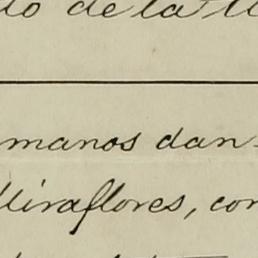 do de la M
manos dan-
Miraflores, con